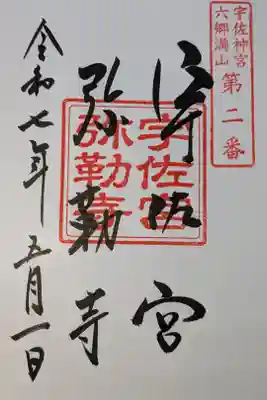 宇佐神宮
六郷満山
第二番
宇佐宮
弥勒寺
宇佐宮
弥勒寺
令和七年 五月一日